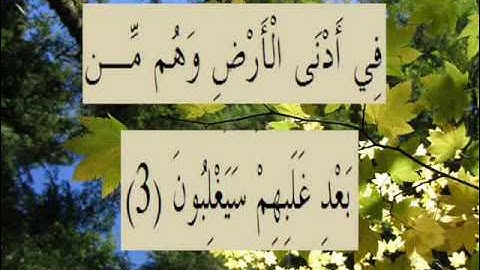 فِي أَدْنَى الْأَرْضِ وَهُم مِّـــن
بَعْدِ غَلَبِهِمْ سَيَغْلِبُونَ (3)